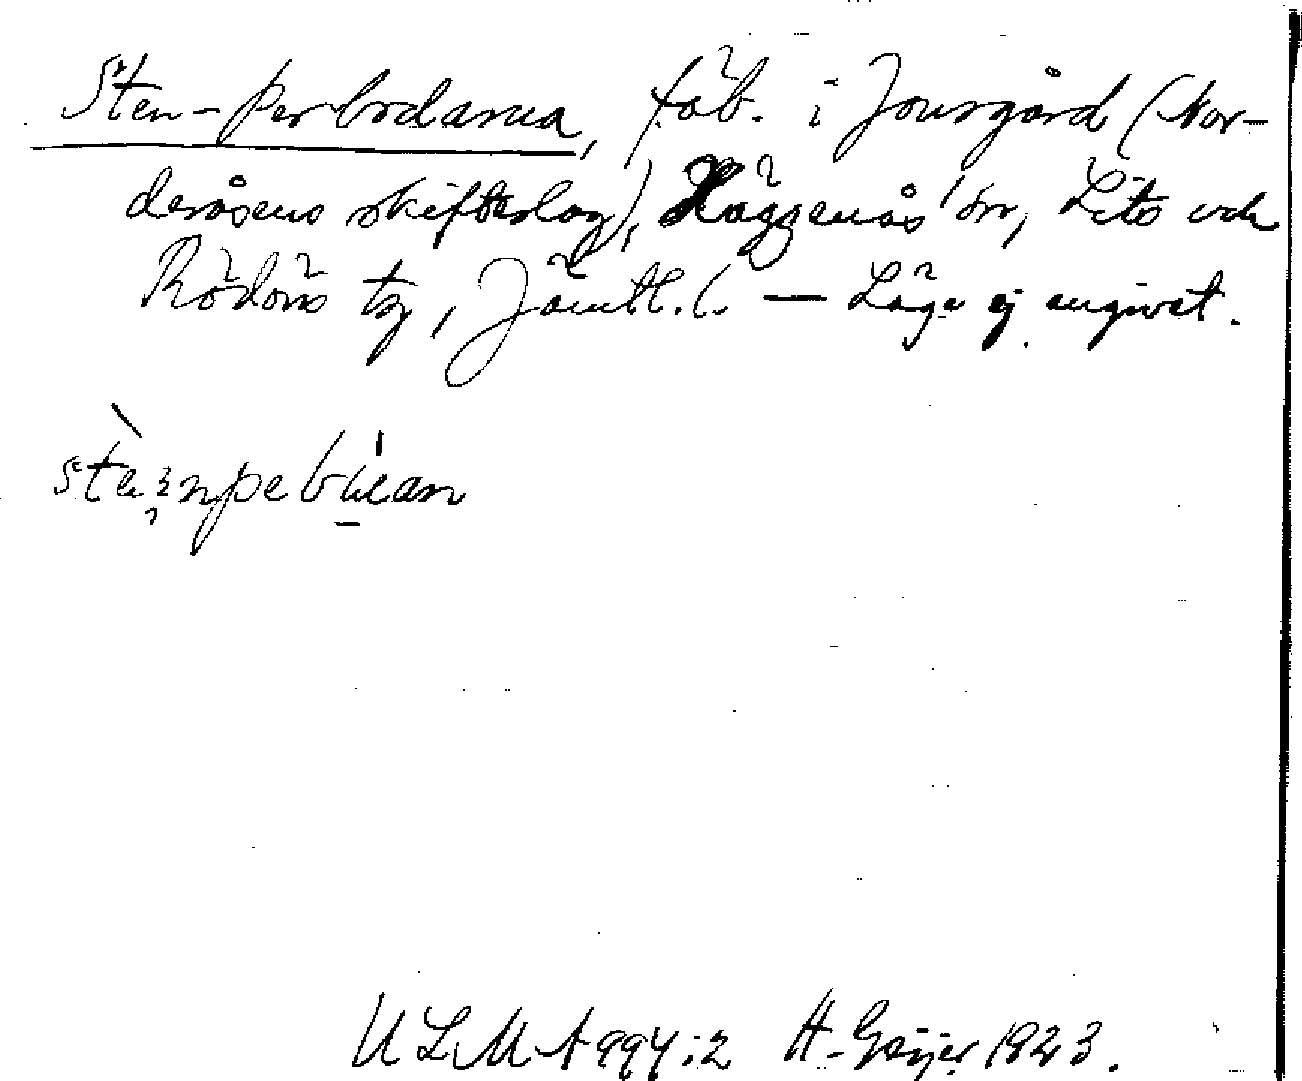 Sten-Perbodarna, fäb. i Jonsgård (Nor-
deråsens skifteslag), Häggenås sn, Lits och
Rödöns tg, Jämtl. l. — Läge ej angivet.
ULMA 994:2 H. Geijer 1923.